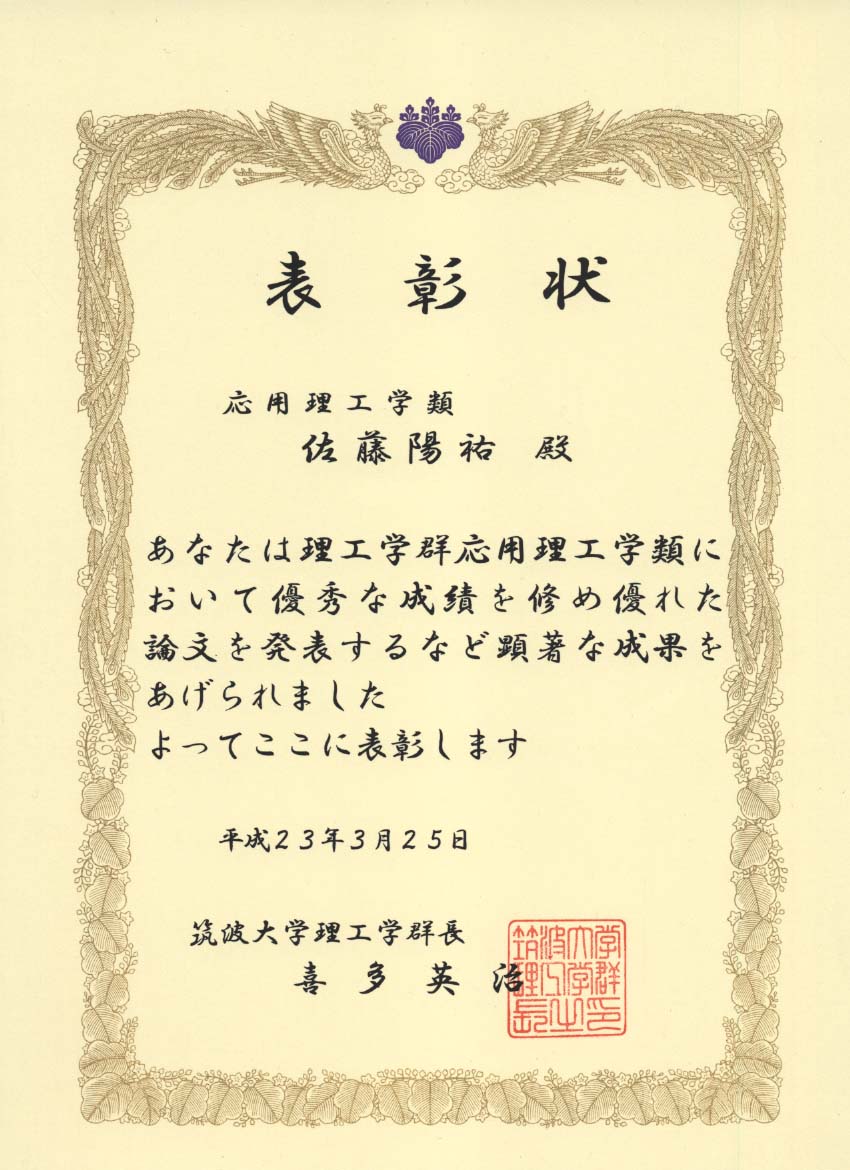 表彰状
応用理工学類
佐藤陽祐 殿
あなたは理工学群応用理工学類に
おいて優秀な成績を修め優れた
論文を発表するなど顕著な成果を
あげられました
よってここに表彰します
平成23年3月25日
筑波大学理工学群長
喜多英治
筑波大学
理工学群
長之印